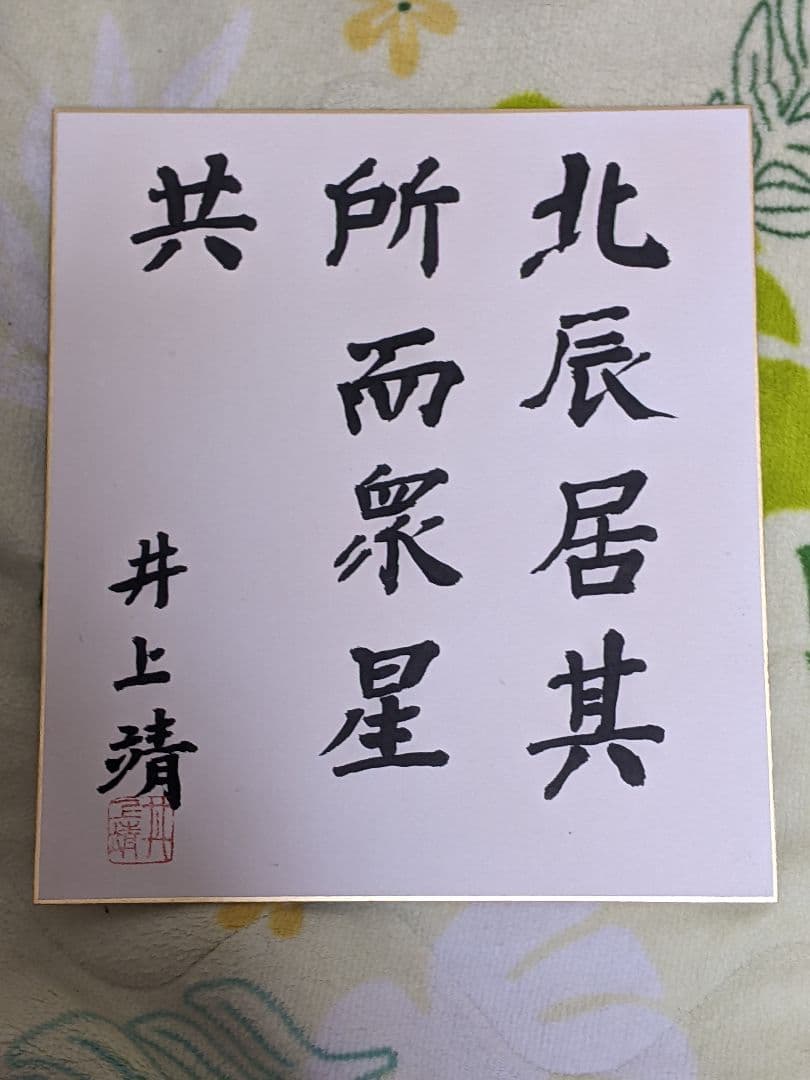 北辰居其
所而衆星
共
井上靖
井上靖